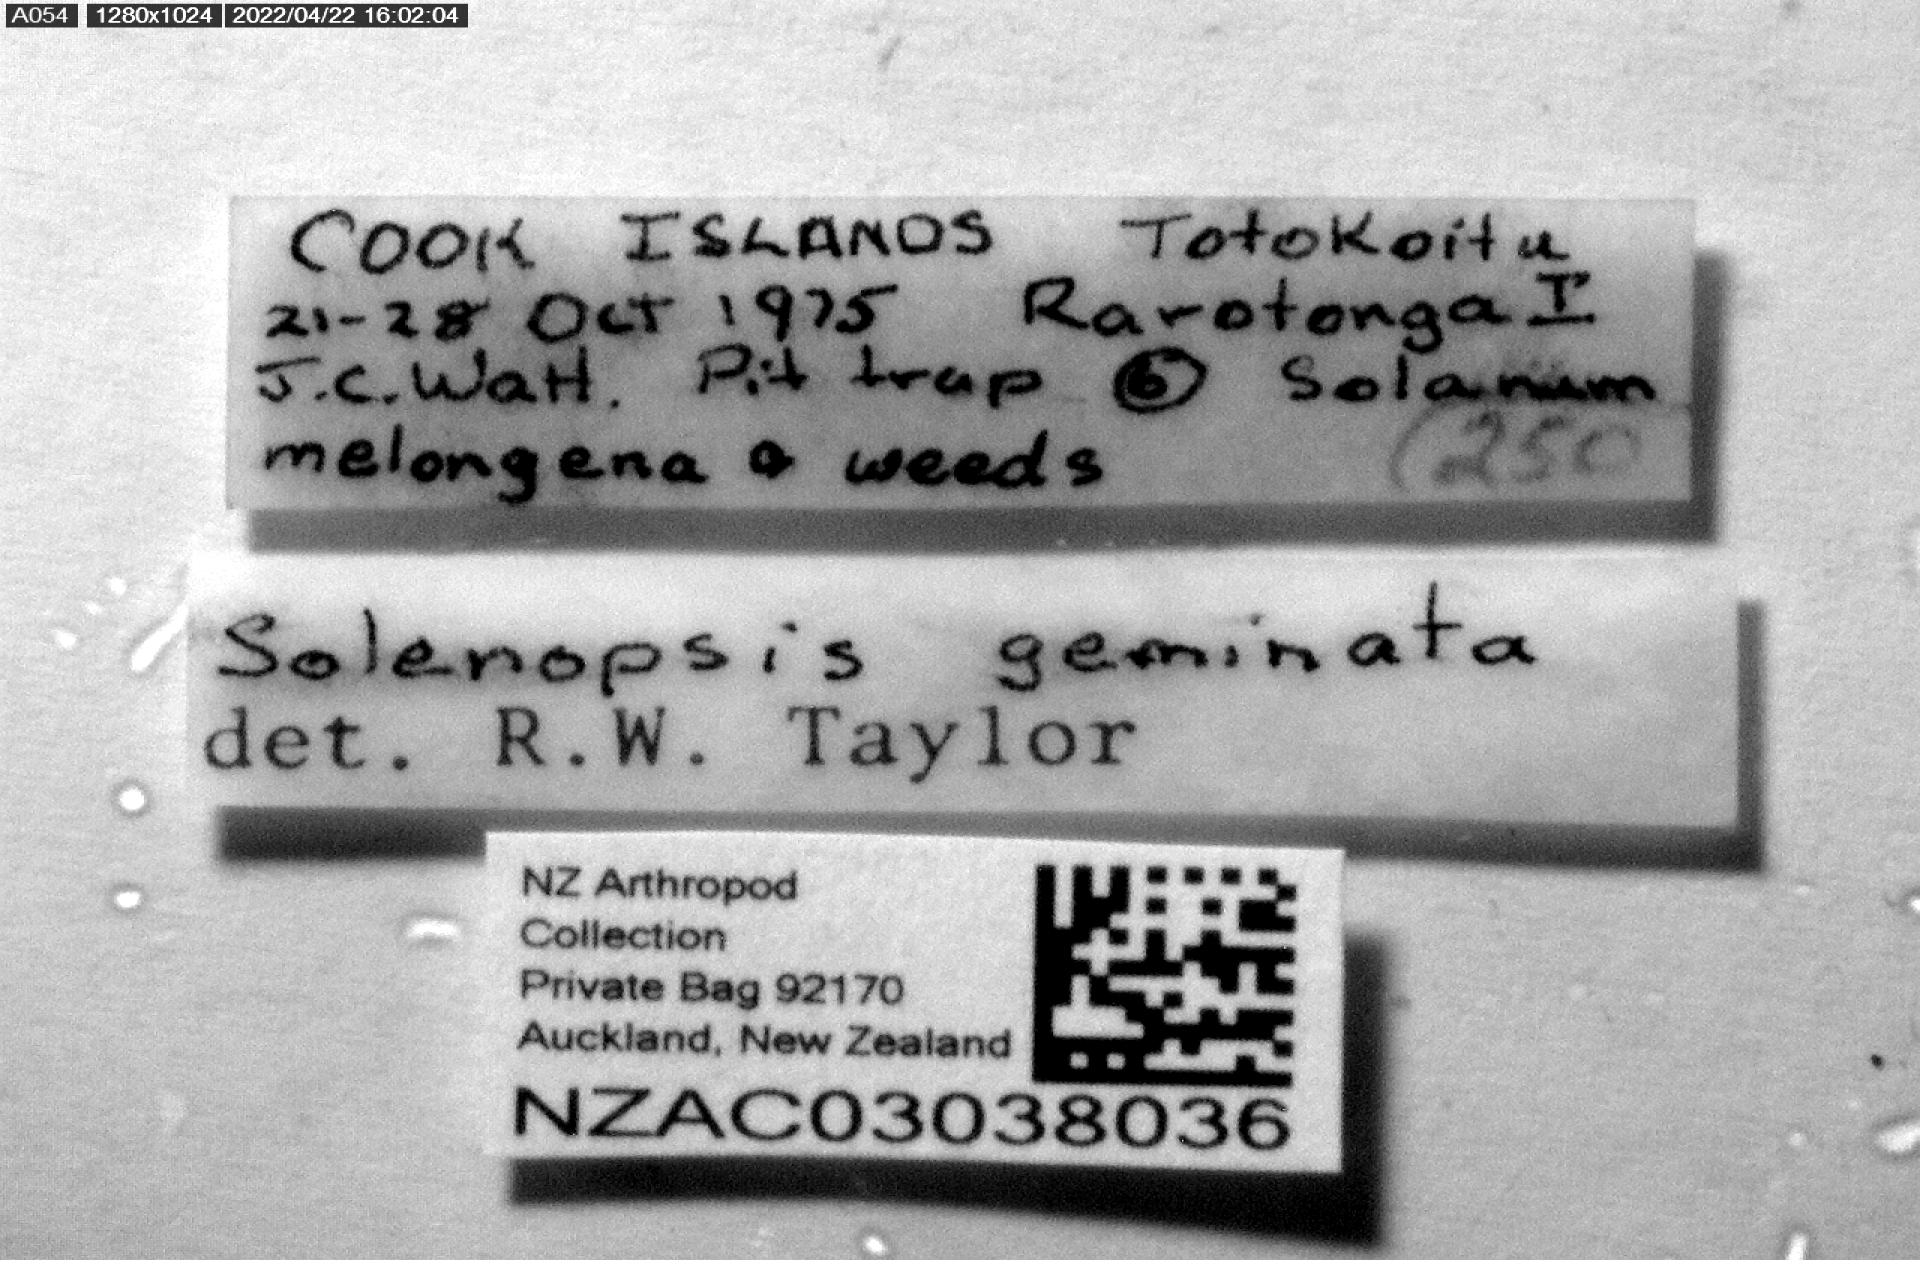 A054 1280x1024 2022/04/22 16:02:04
COOK ISLANDS Totokoitu
21-28 Oct 1975 Rarotonga I
J.C. Watt. Pit trap 6 Solanum
melongena & weeds (250
Solenopsis geminata
det. R.W. Taylor
NZ Arthropod
Collection
Private Bag 92170
Auckland, New Zealand
NZAC03038036